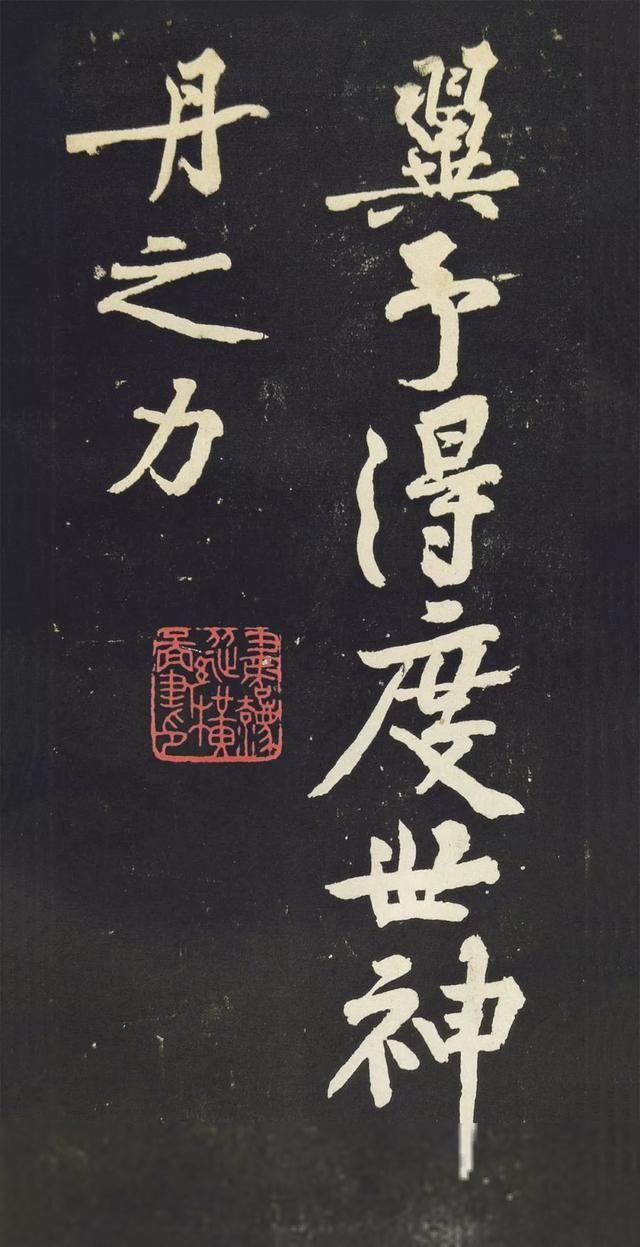 翼予得度世神
丹之力